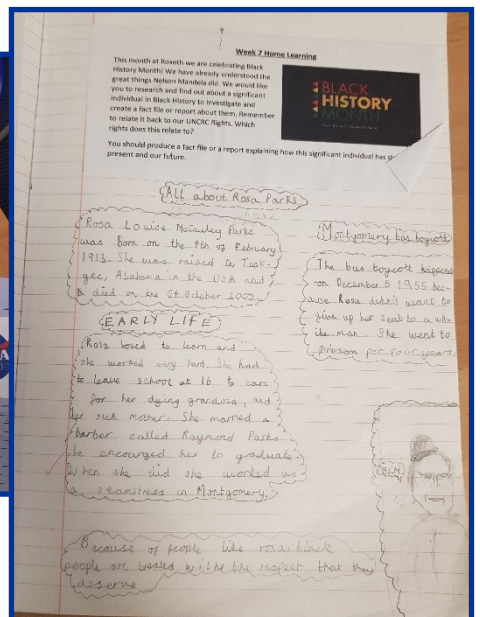 Week 7 Home Learning
This month at Roxeth we are celebrating Black
History Month! We have already understood the
great things Nelson Mandela did. We would like
you to research and find out about a significant
individual in Black History to investigate and
create a fact file or report about them. Remember
to relate it back to our UNCRC Rights. Which
rights does this relate to?
You should produce a fact file or a report explaining how this significant individual has
present and our future.
BLACK
HISTORY
MONTH
All about Rosa Parks
Rosa Louise McCauley Parks
was born on the 4th of February
1913. She was raised in Tusk-
gee, Alabama in the USA and
died on the October 2005.
EARLY LIFE
Rosa loved to learn and
she worked very hard. She had
to leave school at 16 to care
for her dying grandma, and
her sick mother. She married a
barber called Raymond Parks
He encouraged her to graduate.
When she did she worked as
a seamstress in Montgomery.
Montgomery bus boycott
The bus boycott happend
on December 5 1955 bec-
ause Rosa didn't want to
give up her seat to a wh-
ite man. She went to
prison for four years.
BLM
Because of people like rosa black
people are treated with the respect that they
deserve